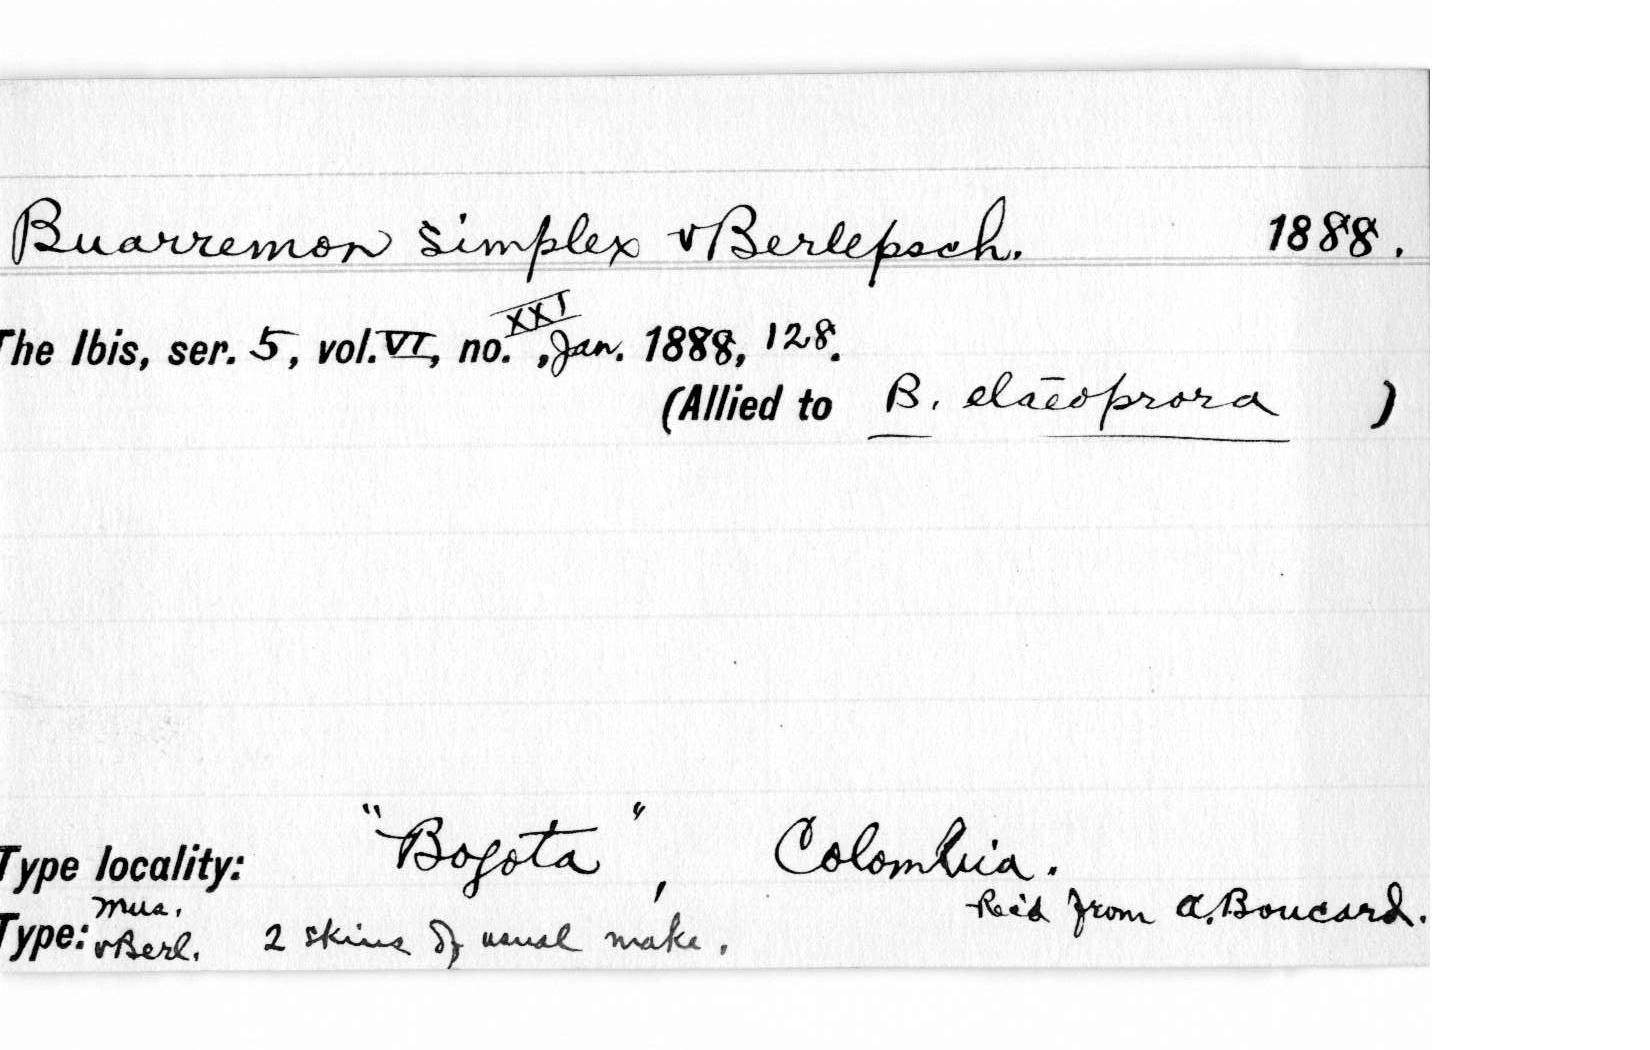 Buarremon simplex vBerlepsch. 1888.
XXI
The Ibis, ser. 5, vol. VI, no. , Jan. 1888, 128.
(Allied to B. elaeoprora )
Type locality: "Bogota", Colombia.
Mus. Rec'd from A. Boucard.
Type: vBerl. 2 skins of usual make.